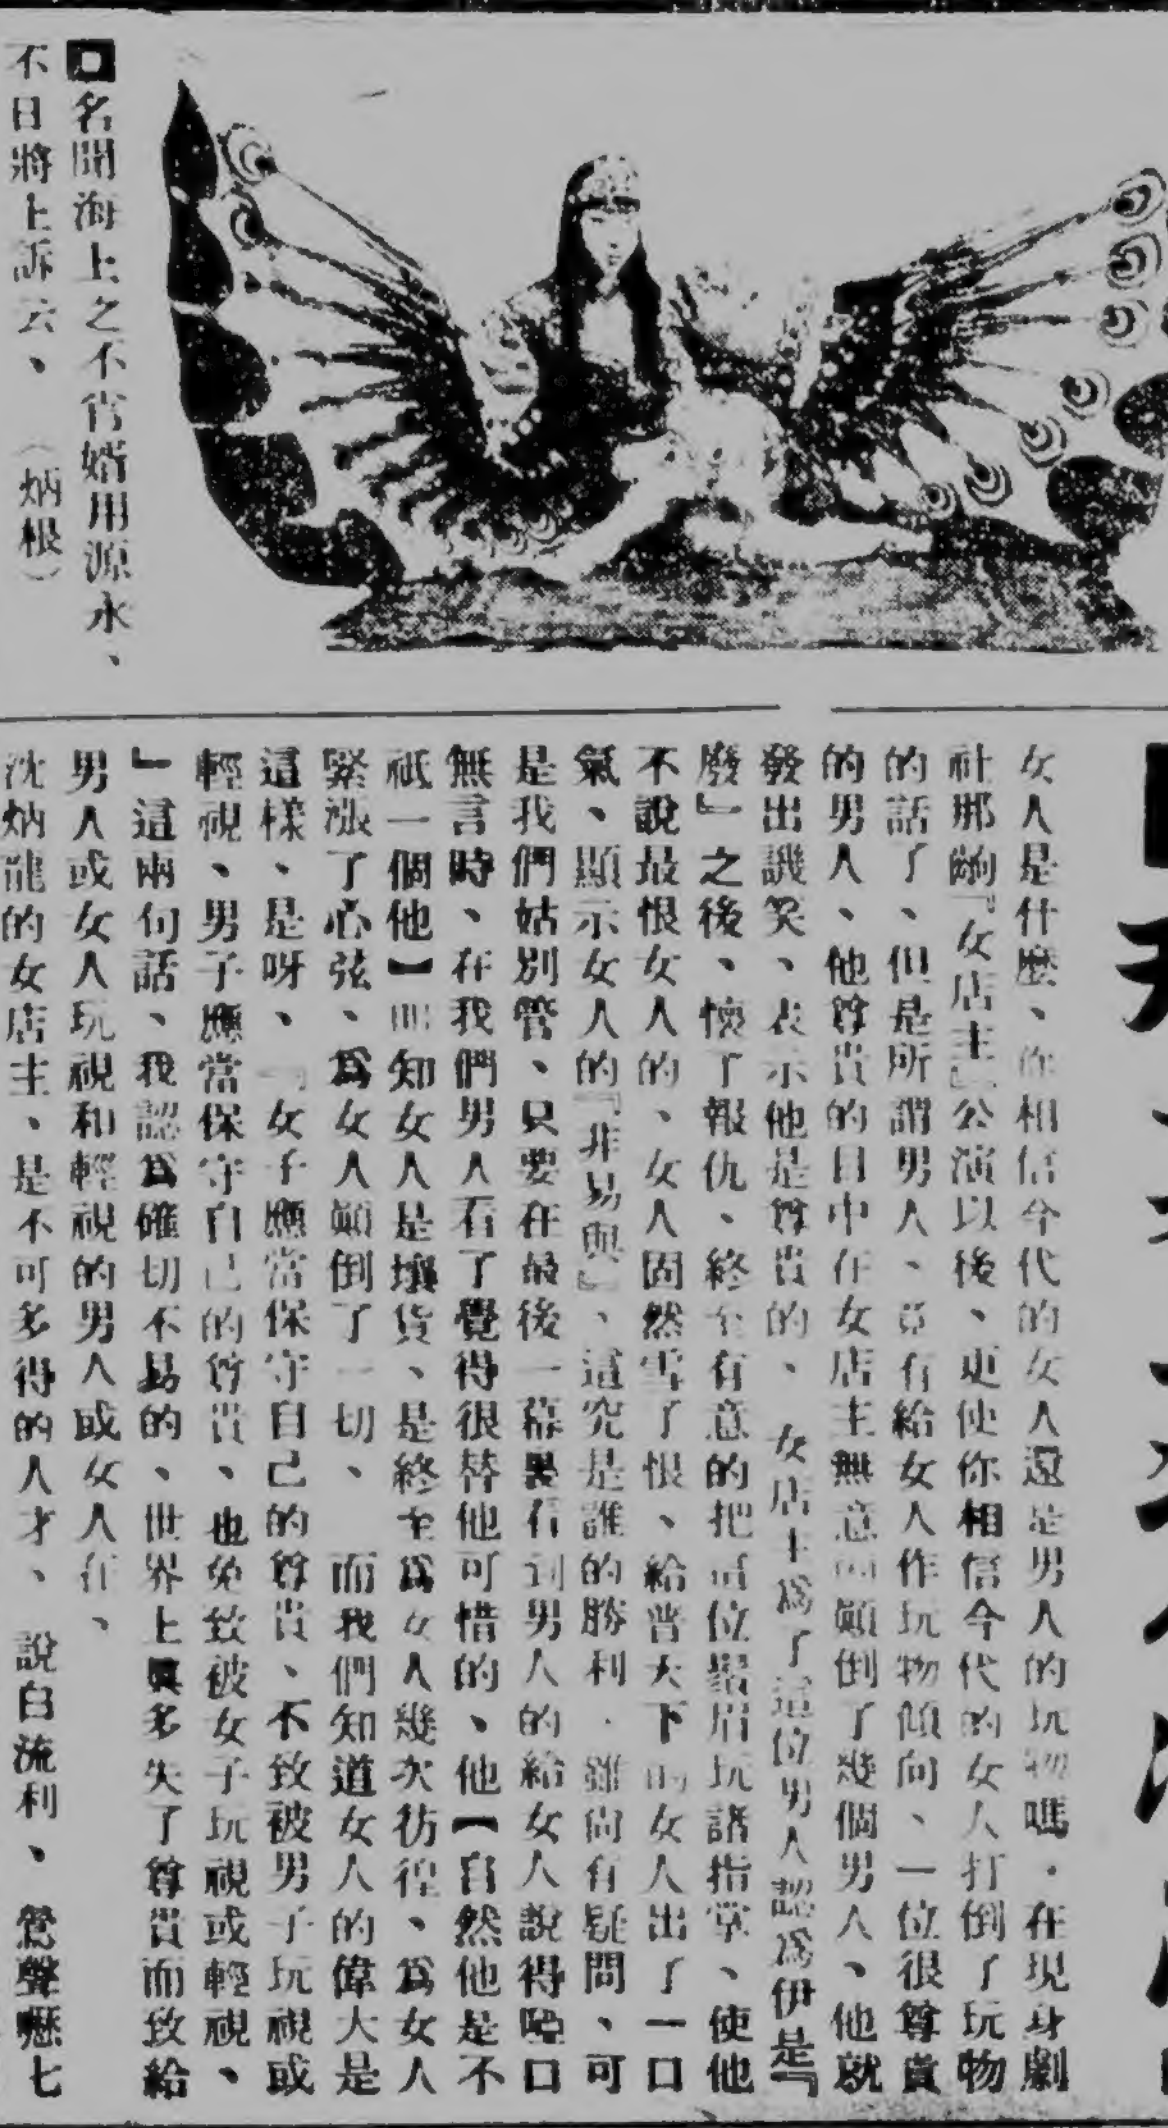 □名聞海上之不肯婿用源永、
不日將上訴云、（炳根）
女人是什麼、你相信今代的女人還是男人的玩物嗎．在現身劇
社那齣『女店主』公演以後、更使你相信今代的女人打倒了玩物
的話了、但是所謂男人、亞有給女人作玩物傾向、一位很尊貴
的男人、他尊貴的目中在女店主無意而顛倒了幾個男人、他就
發出譏笑、表示他是尊貴的、女店主爲了這位男人認爲伊是『
廢』之後、懷了報仇、終至有意的把這位鬚眉玩諸指掌、使他
不說最恨女人的、女人固然雪了恨、給普天下的女人出了一口
氣、顯示女人的『非易與』、這究是誰的勝利．雖尚有疑問、可
是我們姑別管、只要在最後一幕裏看到男人的給女人說得啞口
無言時、在我們男人看了覺得很替他可惜的、他【自然他是不
祇一個他】明知女人是壞貨、是終至爲女人幾次彷徨、爲女人
緊漲了心弦、爲女人顛倒了一切、而我們知道女人的偉大是
這樣、是呀、「女子應當保守自己的尊貴、不致被男子玩視或
輕視、男子應當保守自己的尊貴、也免致被女子玩視或輕視、
』這兩句話、我認爲確切不易的、世界上儘多失了尊貴而致給
男人或女人玩視和輕視的男人或女人在、
沈炳龍的女店主、是不可多得的人才、說白流利、鶯聲嚦七